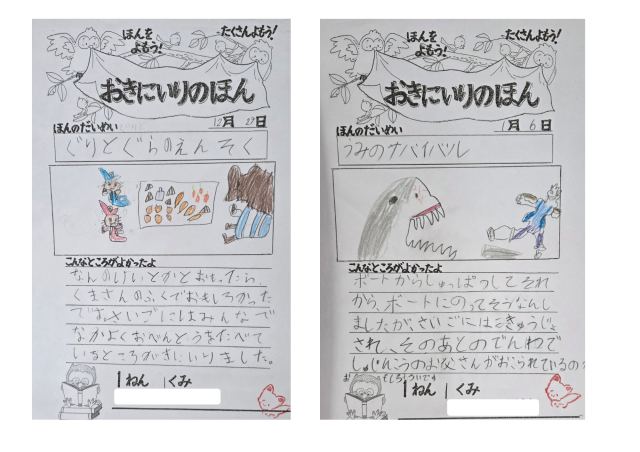 ほんを
よもう!
たくさんよもう!
おきにいりのほん
12月 27日
ほんのだいめい
ぐりとぐらのえんそく
こんなところがよかったよ
なんのけいとかとおもったら、
くまさんのふくでおもしろかった
です。さいごにはみんなで
なかよくおべんとうをたべて
いるところがきにいりました。
1ねん 1くみ
ほんを
よもう!
たくさんよもう!
おきにいりのほん
1月 6日
ほんのだいめい
うみのサバイバル
こんなところがよかったよ
ボートからしゅっぱつしてそれ
から、ボートにのってそうなんし
ましたが、さいごにはきゅうじょ
され、そのあとのでんわで
しゅじんこうのお父さんがおこられているの
1ねん 1くみ